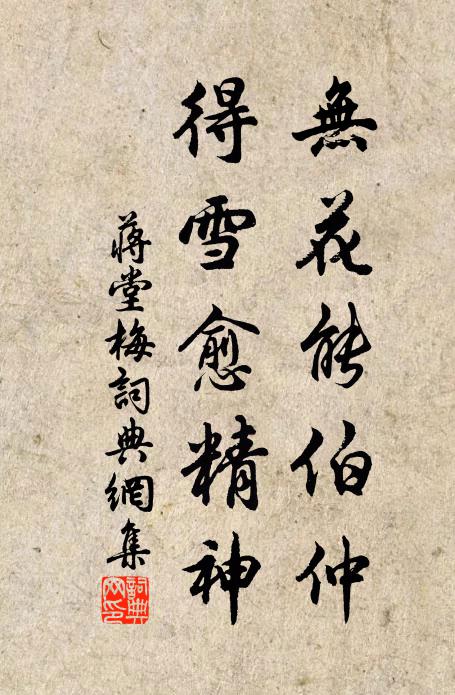 無花能伯仲
得雪愈精神
蔣堂梅詞典網集
詞典網印